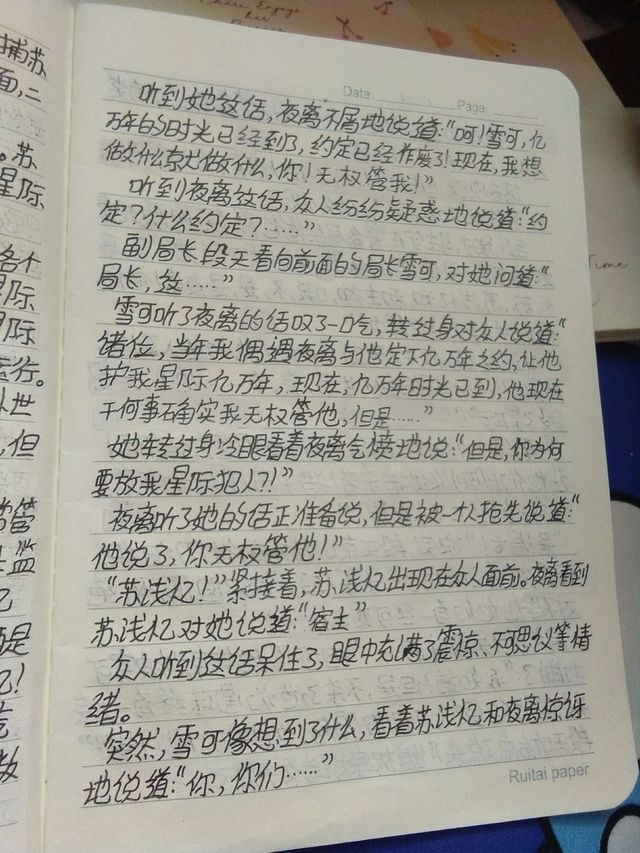 Date
Page
听到她这话，夜离不屑地说道：“呵！雪可，亿
万年的时光已经到了，约定已经作废了！现在，我想
做什么就做什么，你！无权管我！”
听到夜离这话，众人纷纷疑惑地说道：“约
定？什么约定？……”
副局长段天看向前面的局长雪可，对她问道：“
局长，这……”
雪可听了夜离的话叹了一口气，转过身对众人说道：“
诸位，当年我偶遇夜离与他定下亿万年之约，让他
护我星际亿万年，现在，亿万年时光已到，他现在
干何事确实我无权管他，但是……”
她转过身冷眼看着夜离气愤地说：“但是，你为何
要放我星际犯人？！”
夜离听了她的话正准备说，但是被一个人抢先说道：“
他说了，你无权管他！”
“苏浅忆！”紧接着，苏浅忆出现在众人面前。夜离看到
苏浅忆对她说道：“宿主”
众人听到这话呆住了，眼中充满了震惊、不思议等情
绪。
突然，雪可像想到了什么，看着苏浅忆和夜离惊讶
地说道：“你，你们……”
Ruitai paper
捕苏
面，二
苏
星际
各个
星际
运行。
但
管
监
忆
是
忆！
Time